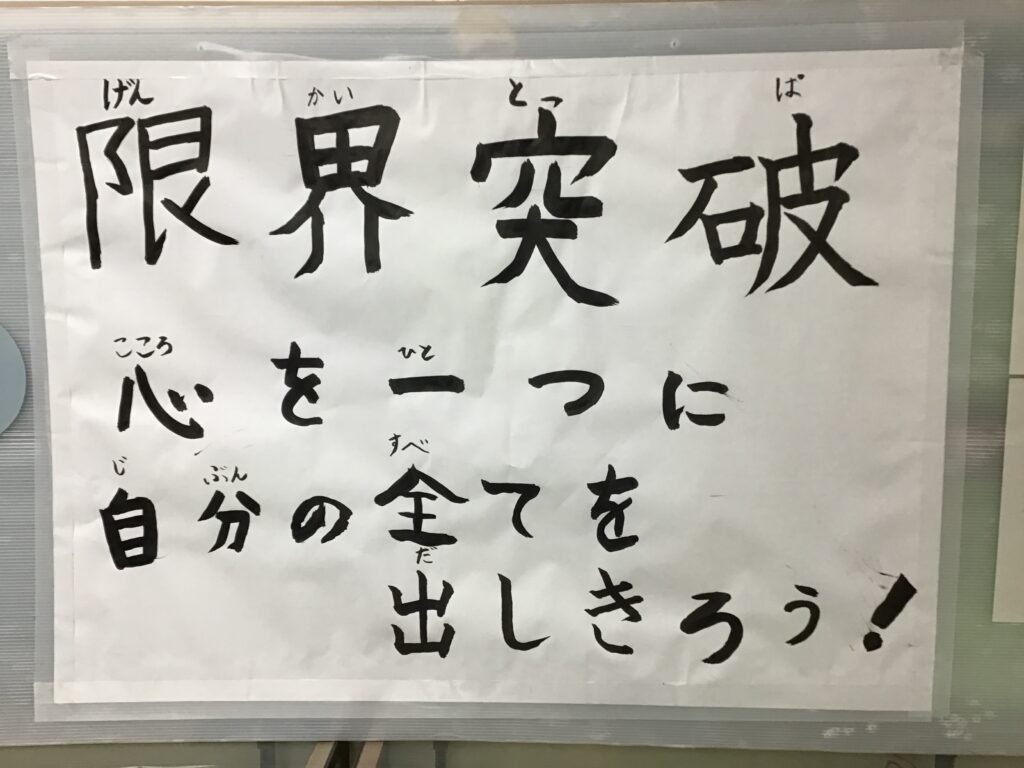 げん かい とっ ぱ
限界突破
こころ ひと
心を一つに
じ ぶん すべ
自分の全てを
だ
出しきろう!